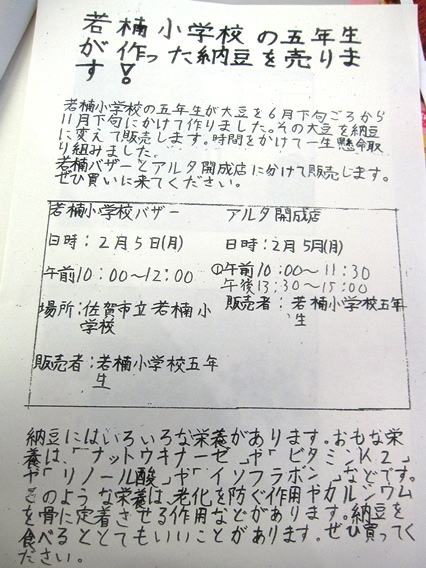 若楠小学校の五年生
が作った納豆を売りま
す!
若楠小学校の五年生が大豆を6月下旬ごろから
11月下旬にかけて作りました。その大豆を納豆
に変えて販売します。時間をかけて一生懸命取
り組みました。
若楠バザーとアルタ開成店に分けて販売します。
ぜひ買いに来てください。
若楠小学校バザー
日時:2月5日(月)
午前10:00〜12:00
場所:佐賀市立若楠小
学校
販売者:若楠小学校五年
生
アルタ開成店
日時:2月5月(月)
①午前10:00〜11:30
午後13:30〜15:00
販売者:若楠小学校五年
生
納豆にはいろいろな栄養があります。おもな栄
養は、「ナットウキナーゼ」や「ビタミンK2」
や「リノール酸」や「イソフラボン」などです。
このような栄養は、老化を防ぐ作用やカルシウム
を骨に定着させる作用などがあります。納豆を
食べるととてもいいことがあります。ぜひ買ってく
ださい。